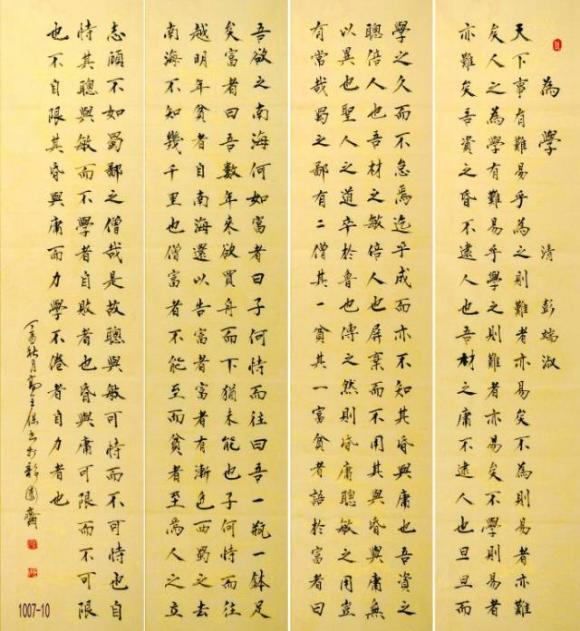 為學 清 彭端淑
天下事有難易乎為之則難者亦易矣不為則易者亦難
矣人之為學有難易乎學之則難者亦易矣不學則易者
亦難矣吾資之昏不逮人也吾材之庸不逮人也旦旦而
學之久而不怠焉迄乎成而亦不知其昏與庸也吾資之
聰倍人也吾材之敏倍人也屏棄而不用其與昏與庸無
以異也聖人之道卒於魯也傳之然則昏庸聰敏之用豈
有常哉蜀之鄙有二僧其一貧其一富貧者語於富者曰
吾欲之南海何如富者曰子何恃而往曰吾一瓶一鉢足
矣富者曰吾數年來欲買舟而下猶未能也子何恃而往
越明年貧者自南海還以告富者富者有漸色西蜀之去
南海不知幾千里也僧富者不能至而貧者至焉人之立
志顧不如蜀鄙之僧哉是故聰與敏可恃而不可恃也自
恃其聰與敏而不學者自敗者也昏與庸可限而不可限
也不自限其昏與庸而力學不倦者自力者也
丁亥秋月
1007-10